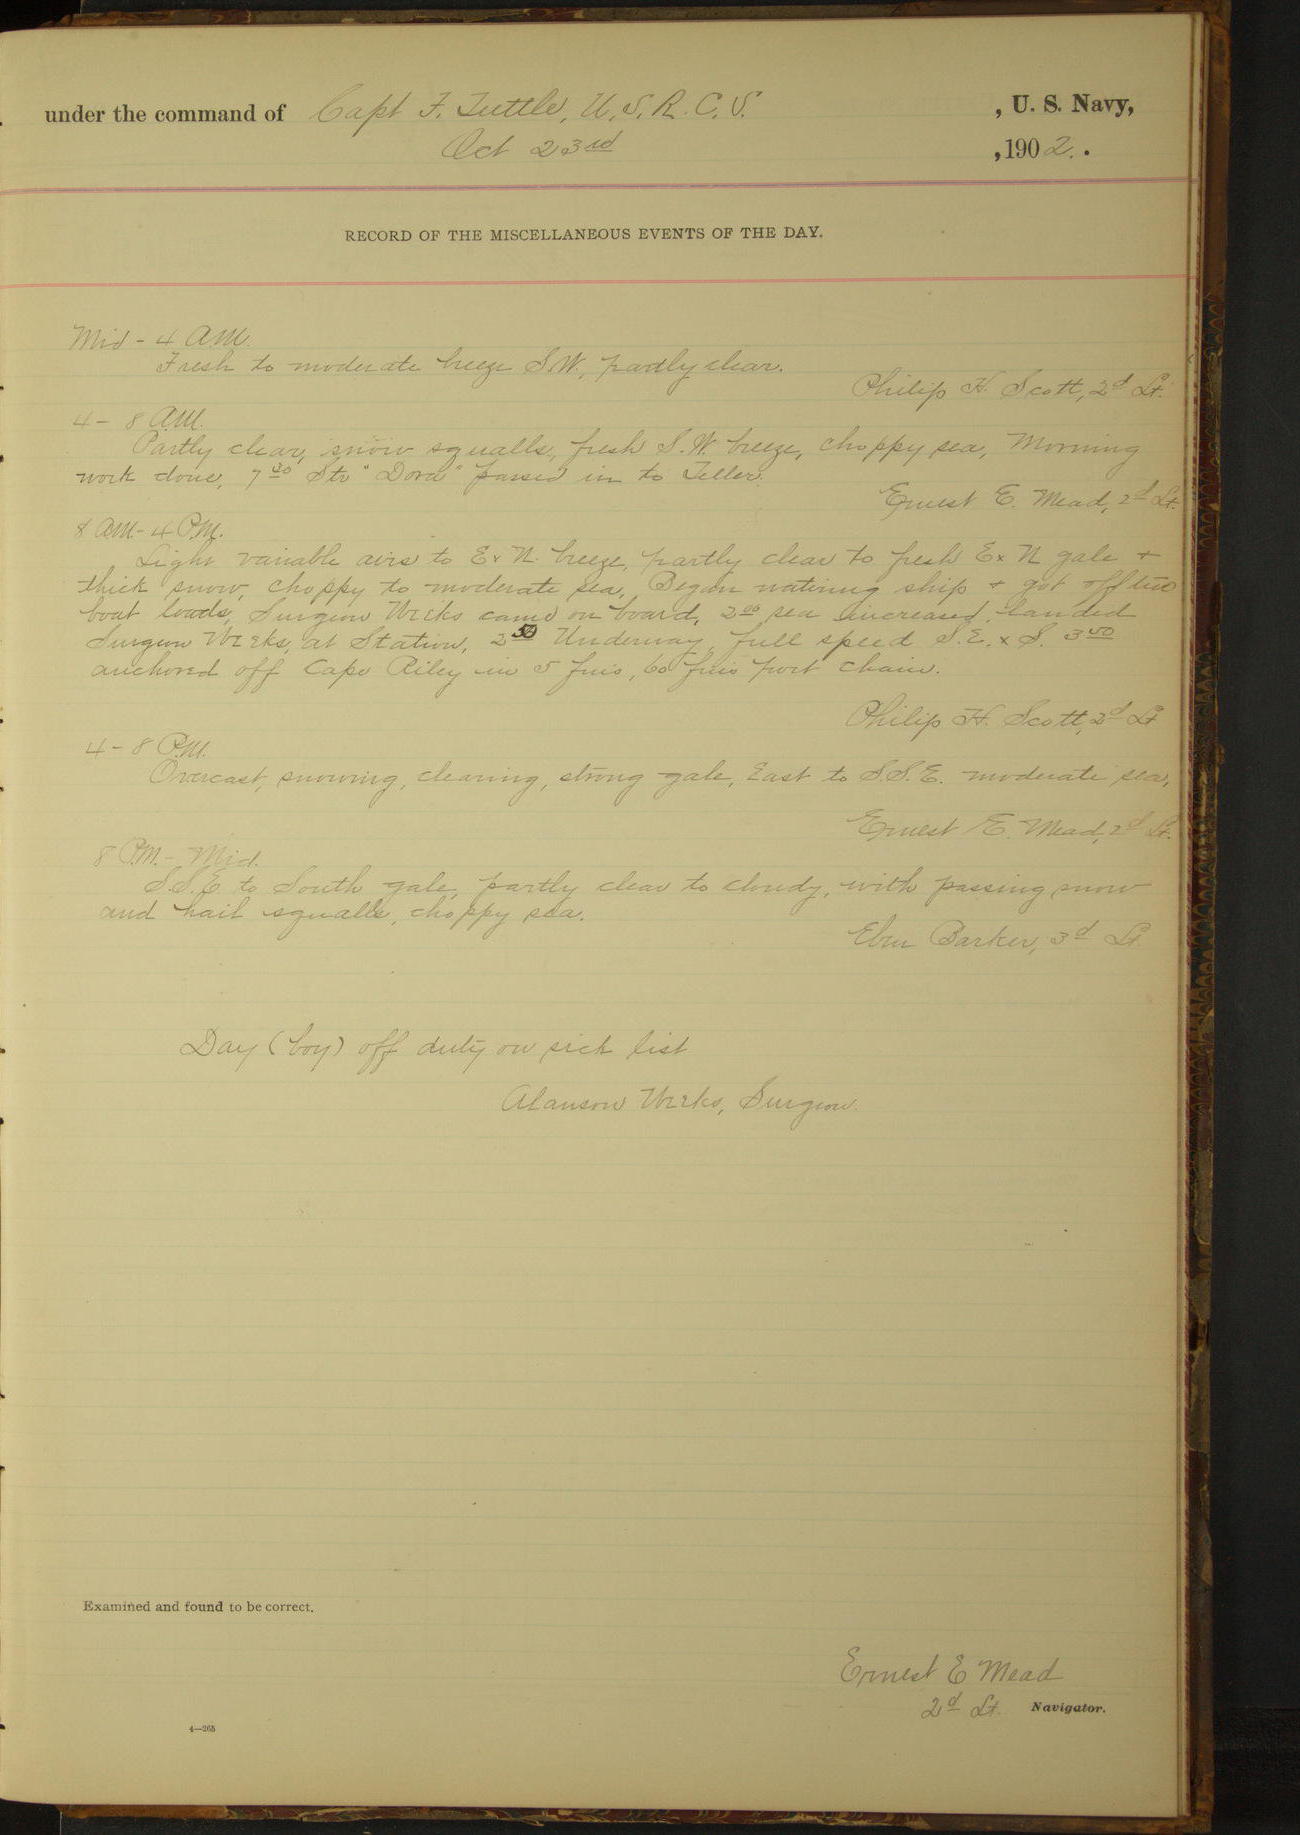 under the command of Capt F. Tuttle, U.S.R.C.S. , U. S. Navy,
Oct 23rd , 1902. .
RECORD OF THE MISCELLANEOUS EVENTS OF THE DAY.
Mid - 4 A.M.
Fresh to moderate breeze S.W., partly clear.
Philip H. Scott, 2d Lt.
4 - 8 A.M.
Partly clear, snow squalls, fresh S.W. breeze, choppy sea, Morning
work done, 7 30 Str "Dora" passed in to Teller.
Ernest E. Mead, 2d Lt.
8 AM - 4 P.M.
Light variable airs to E x N. breeze, partly clear to fresh E x N gale +
thick snow, choppy to moderate sea, Began watering ship + got off two
boat loads, Surgeon Weeks came on board, 2 00 sea increased, landed
Surgeon Weeks, at Station, 2 50 Underway, full speed S.E. x S. 3 50
anchored off Cape Riley in 5 fms, 60 fms port chain.
Philip H. Scott, 2d Lt
4 - 8 P.M.
Overcast, snowing, clearing, strong gale, East to S.S.E. moderate sea,
Ernest E. Mead, 2d Lt.
8 P.M. - Mid.
S.S.E to South gale, partly clear to cloudy, with passing snow
and hail squalls, choppy sea.
Eben Barker, 3d Lt.
Day (boy) off duty on sick list
Alanson Weeks, Surgeon.
Examined and found to be correct.
Ernest E Mead
2d Lt. Navigator.
4—265